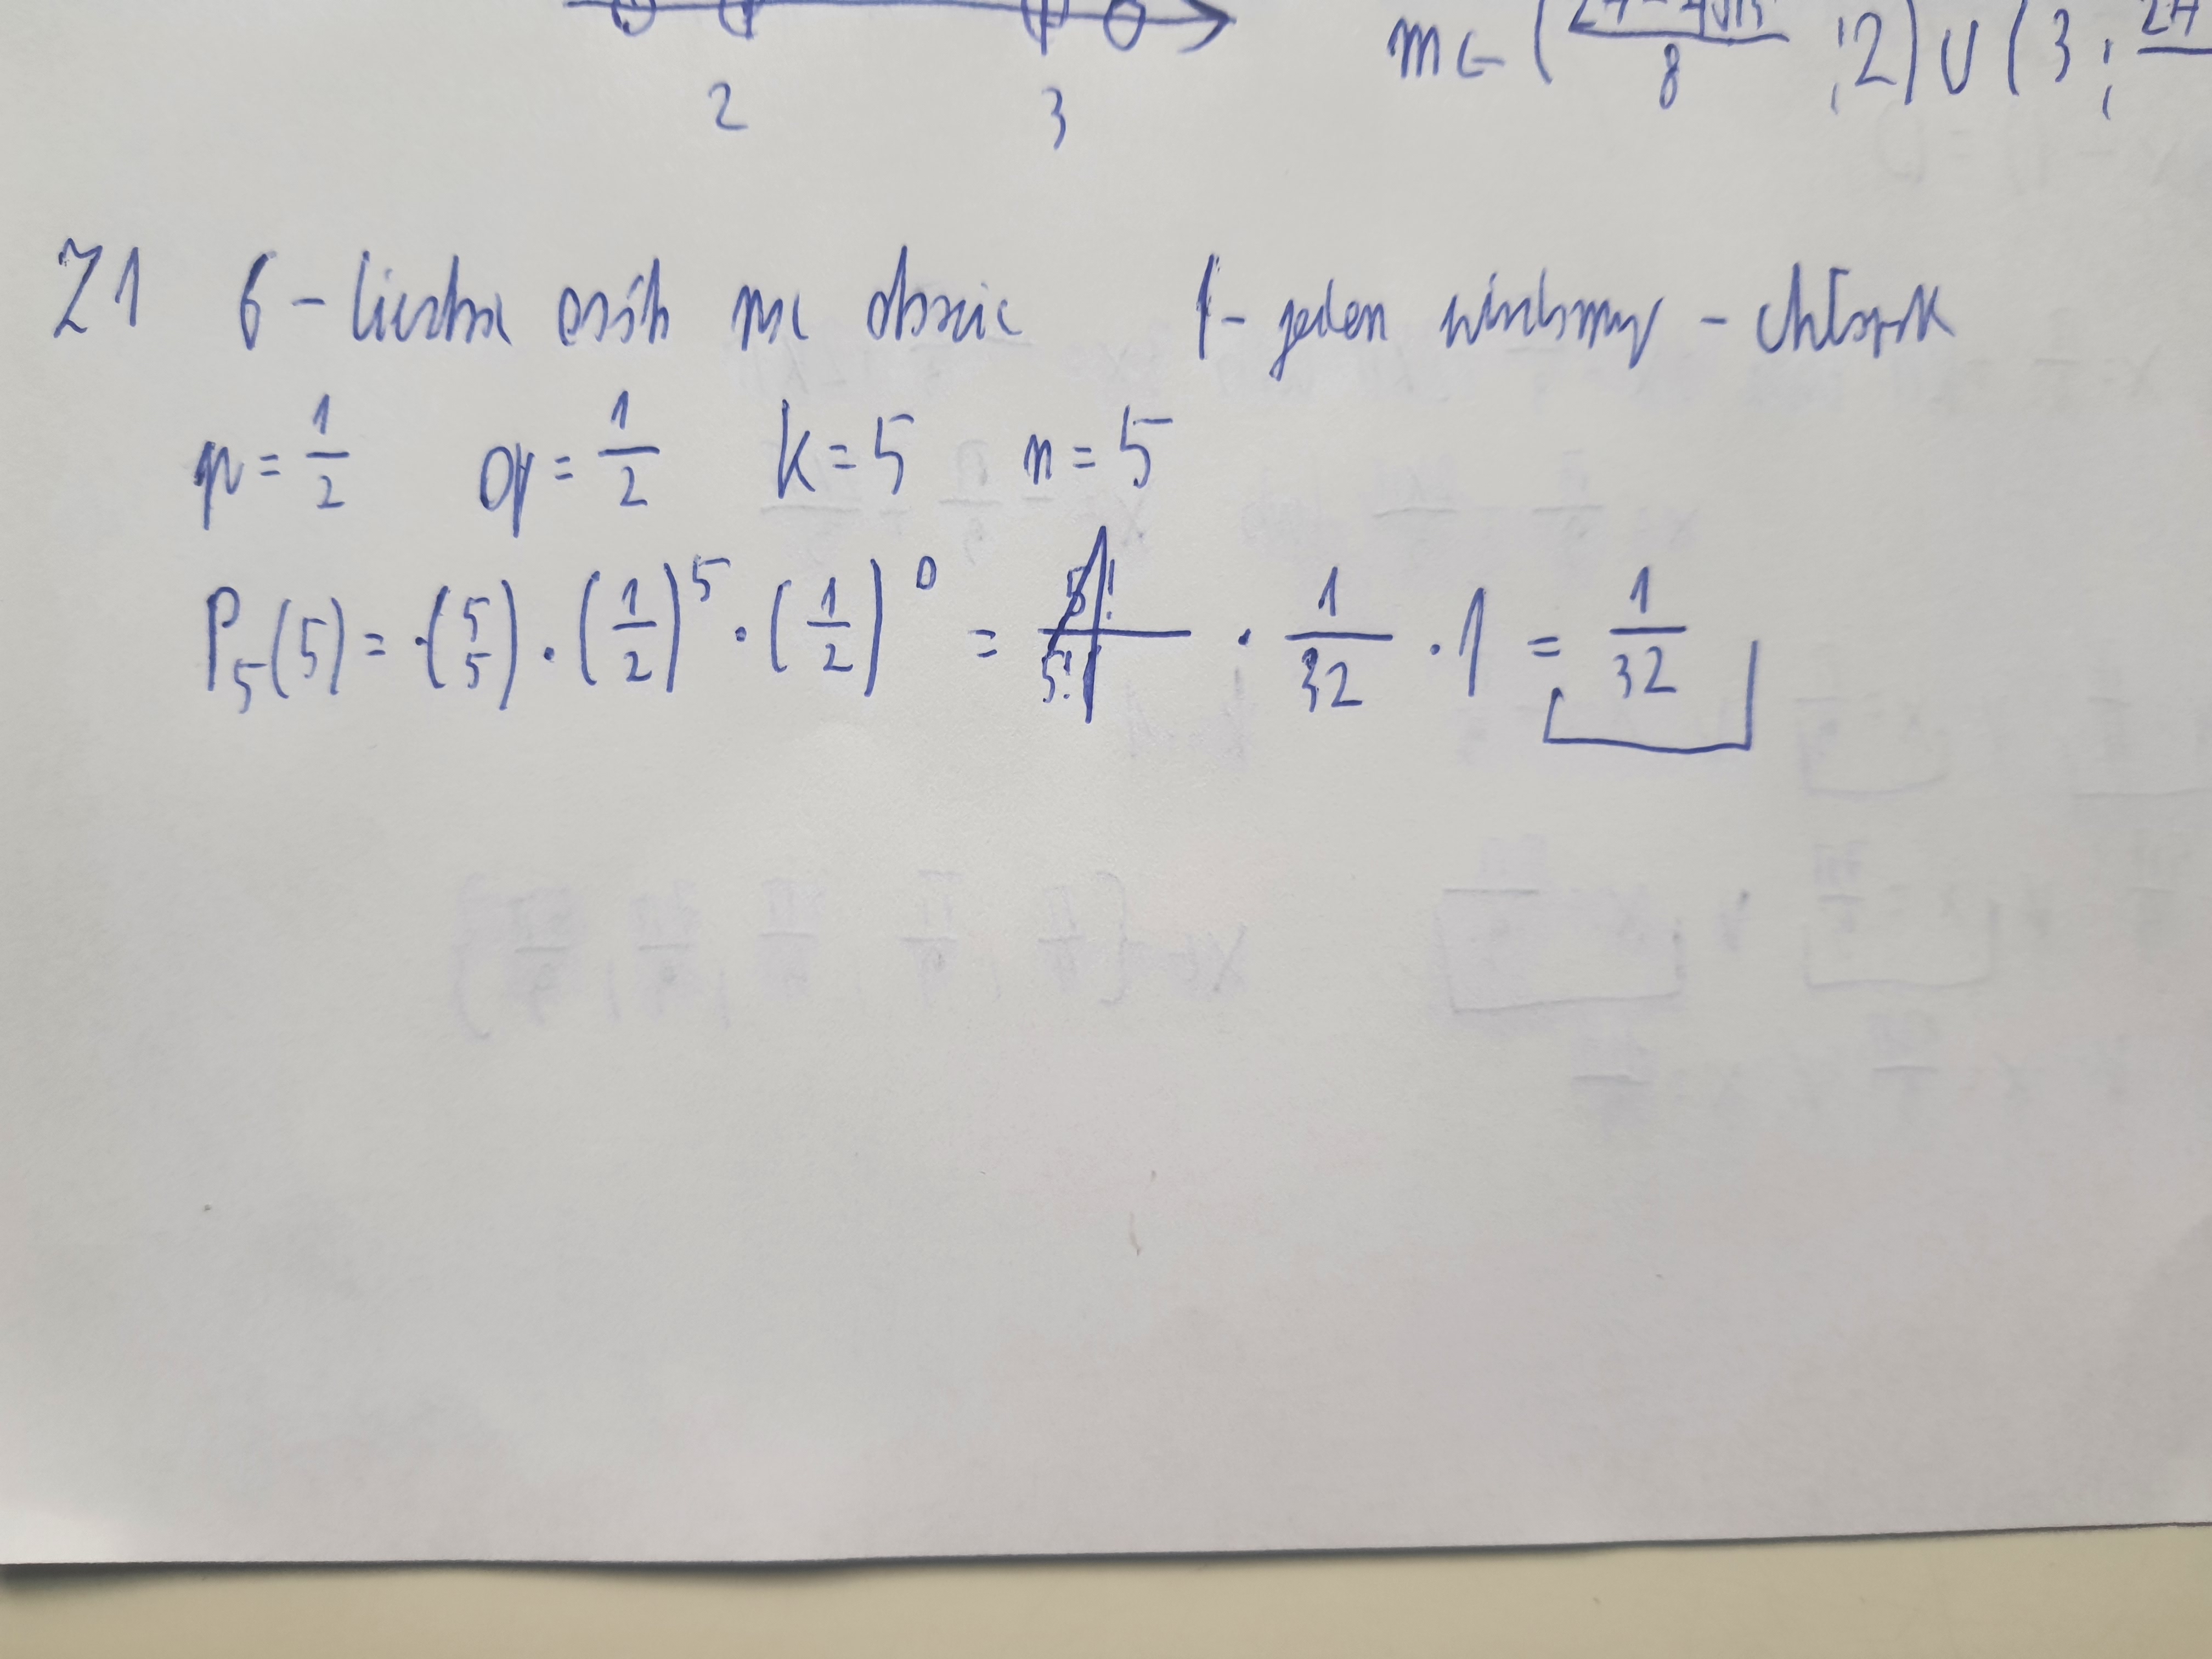 2 3 m∈(24-4√15/8 ; 2) ∪ (3 ; 24
Z1 6 - liczba osób na obozie 1 - jeden wiadomy - chłopak
p = 1/2 q = 1/2 k = 5 n = 5
P₅(5) = · (5 5) · (1/2)⁵ · (1/2)⁰ = 5!/5! · 1/32 · 1 = 1/32